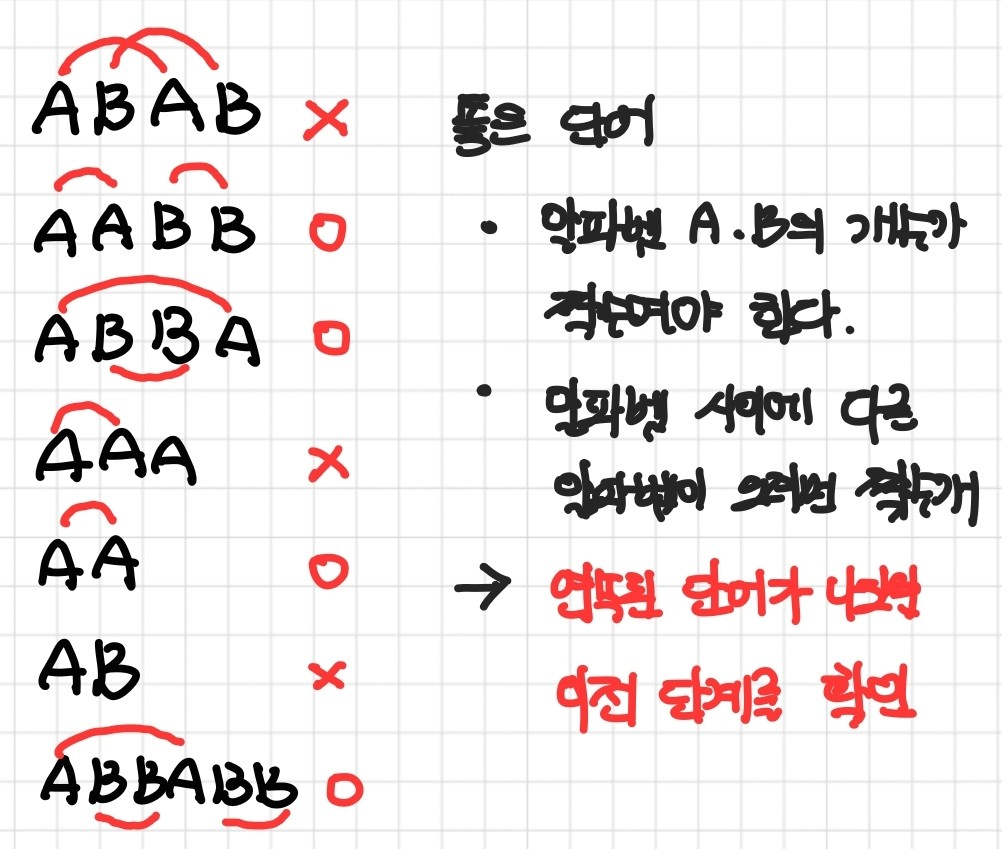 ABAB ×
AABB O
ABBA O
AAA ×
AA O
AB ×
ABBABB O
좋은 단어
• 알파벳 A.B의 개수가
짝수여야 한다.
• 알파벳 사이에 다른
알파벳이 오려면 짝수개
→ 연속된 단어가
이전 단계를 확인